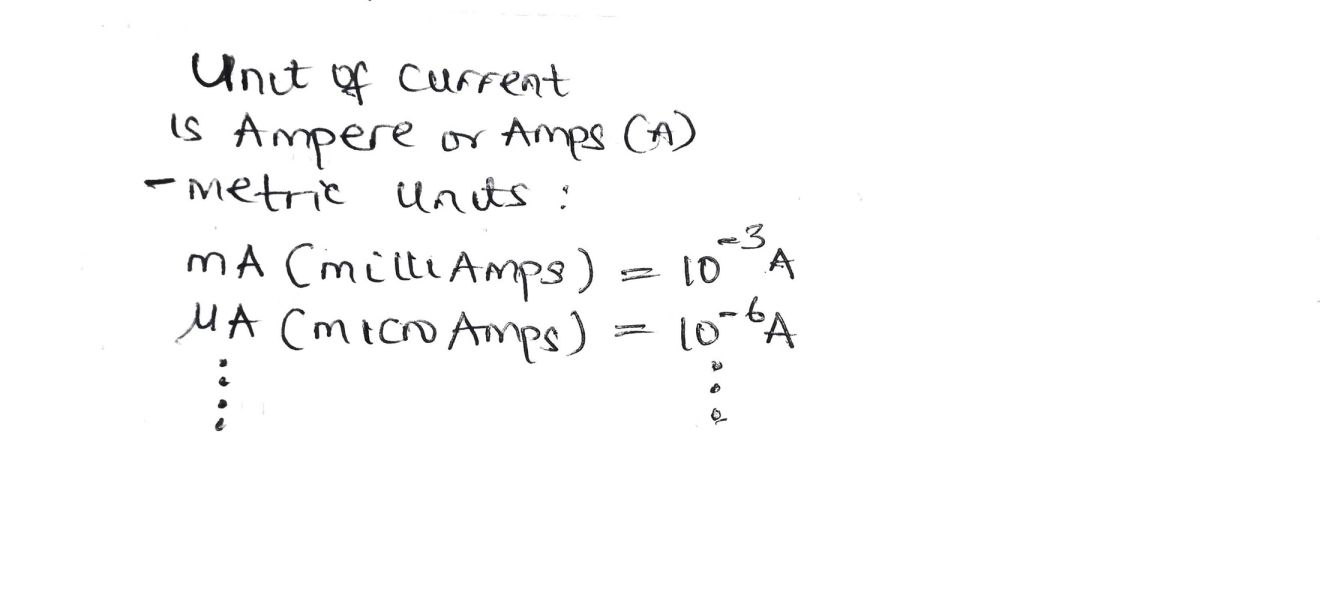 Unit of current
is Ampere or Amps (A)
- metric units :
mA (milliAmps) = 10⁻³A
μA (microAmps) = 10⁻⁶A